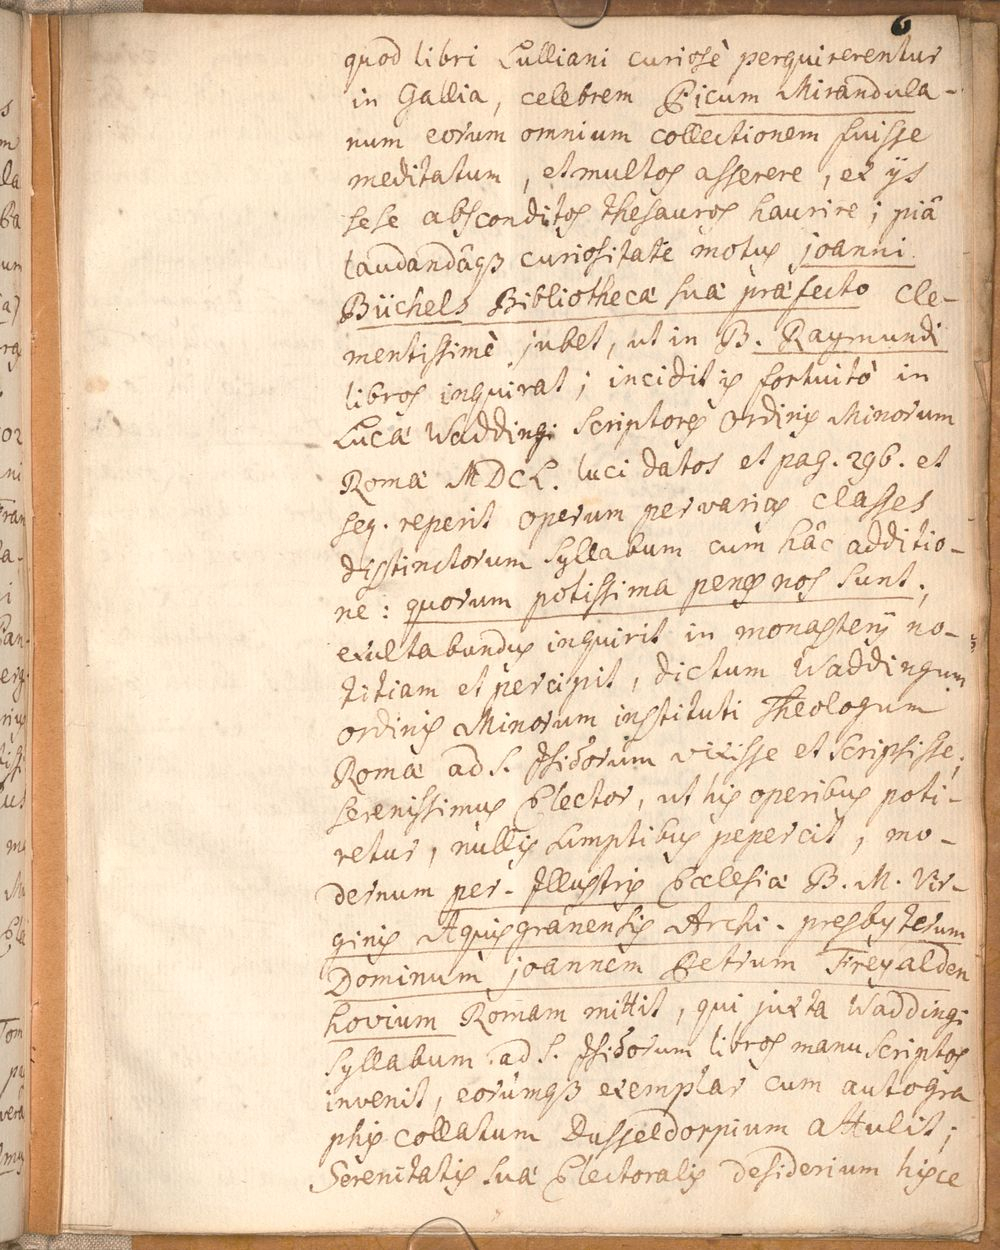 6
quod libri Lulliani curiosè perquirerentur
in Gallia, celebrem Picum Mirandula-
num eorum omnium collectionem fuisse
meditatum, et multos asserere, ex ijs
sese absconditos thesauros haurire; piâ
laudandâq3 curiositate motus joanni
Büchels Bibliothecæ suæ præfecto cle-
mentissimè jubet, ut in B. Raymundi
libros inquirat; incidit is fortuitò in
Lucæ Waddingi Scriptores Ordinis Minorum
Romæ MDCL. luci datos et pag. 296. et
seq. reperit operum per varias classes
distinctorum syllabum cum hâc additio-
ne: quorum potissima penes nos sunt;
exultabundus inquirit in monasterij no-
titiam et percipit, dictum Waddingum
ordinis Minorum instituti Theologum
Romæ ad S. Isidorum vixisse et scripsisse;
serenissimus Elector, ut his operibus poti-
retur, nullis sumptibus pepercit, mo-
dernum per-Illustris Ecclesiæ B. M. Vir-
ginis Aquisgranensis Archi-presbyterum
Dominum joannem Petrum Freyalden
hovium Romam mittit, qui juxta Waddingi
syllabum ad S. Isidorum libros manuscriptos
invenit, eorumq3 exemplar cum autogra
phis collatum Dusseldorpium attulit;
Serenitatis suæ Electoralis desiderium hisce